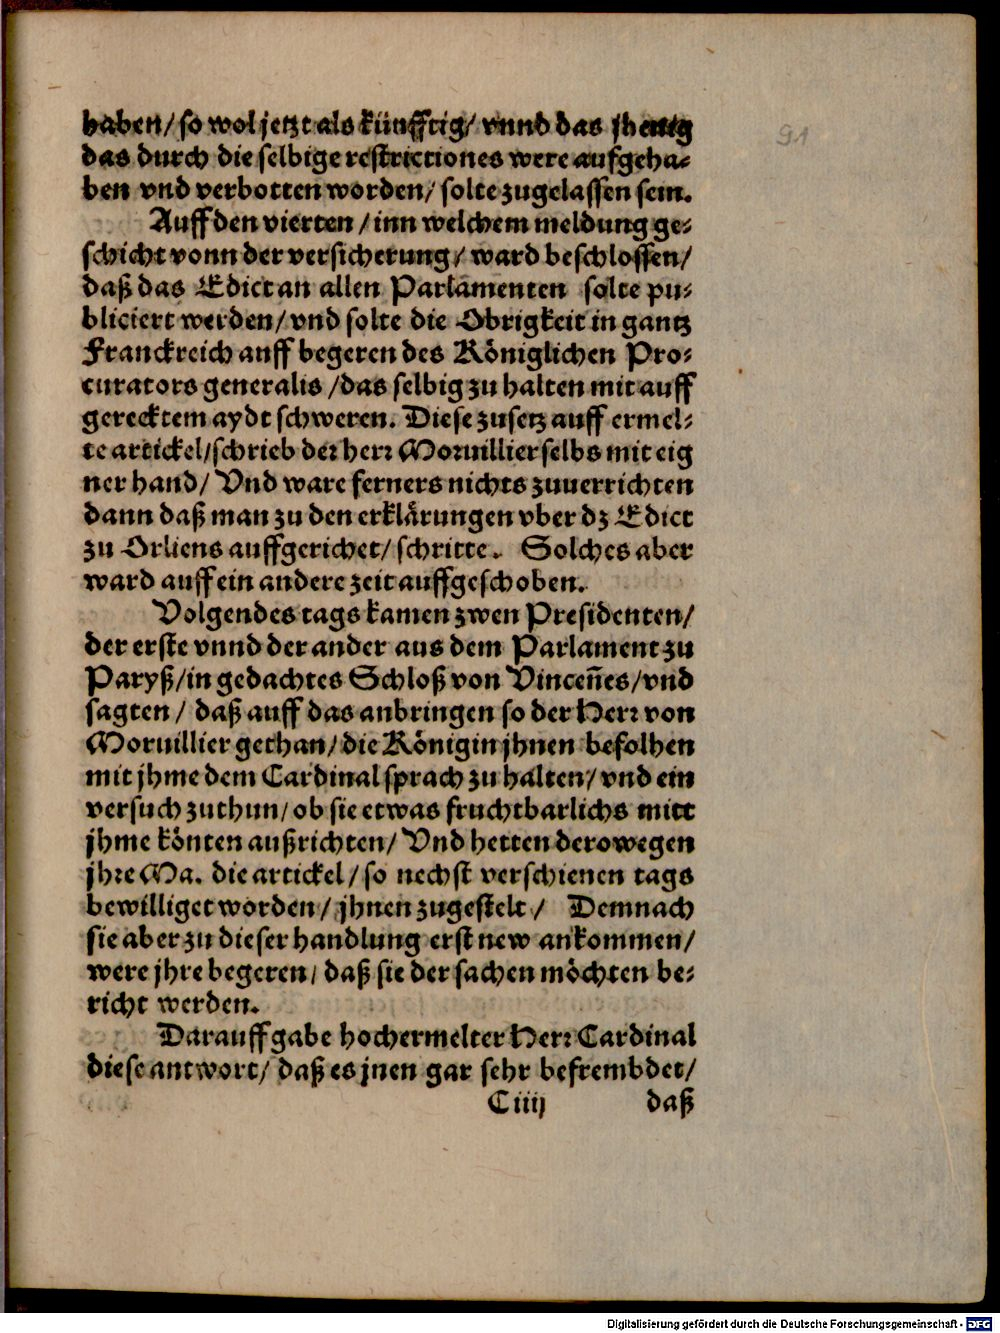 91
haben/ so wol jetzt als künfftig/ vnnd das jhenig
das durch die selbige restrictiones were aufgeha-
ben vnd verbotten worden/ solte zugelassen sein.
Auff den vierten / inn welchem meldung ge-
schicht vonn der versicherung/ ward beschlossen/
daß das Edict an allen Parlamenten solte pu-
bliciert werden/ vnd solte die Obrigkeit in gantz
Franckreich auff begeren des Königlichen Pro-
curators generalis /das selbig zu halten mit auff
gerecktem aydt schweren. Diese zusetz auff ermel-
te artickel/schrieb der herr Moruillier selbs mit eig
ner hand/ Vnd ware ferners nichts zuuerrichten
dann daß man zu den erklärungen vber dz Edict
zu Orliens auffgerichet/ schritte. Solches aber
ward auff ein andere zeit auffgeschoben.
Volgendes tags kamen zwen Presidenten/
der erste vnnd der ander aus dem Parlament zu
Paryß/in gedachtes Schloß von Vinceñes/vnd
sagten / daß auff das anbringen so der Herr von
Moruillier gethan/ die Königin jhnen befolhen
mit jhme dem Cardinal sprach zu halten/ vnd ein
versuch zuthun/ ob sie etwas fruchtbarlichs mitt
jhme könten außrichten/ Vnd hetten derowegen
jhre Ma. die artickel/ so nechst verschienen tags
bewilliget worden/ jhnen zugestelt / Demnach
sie aber zu dieser handlung erst new ankommen/
were jhre begeren/ daß sie der sachen möchten be-
richt werden.
Darauff gabe hochermelter Herr Cardinal
diese antwort/ daß es jnen gar sehr befrembdet/
C iiij daß
Digitalisierung gefördert durch die Deutsche Forschungsgemeinschaft - DFG